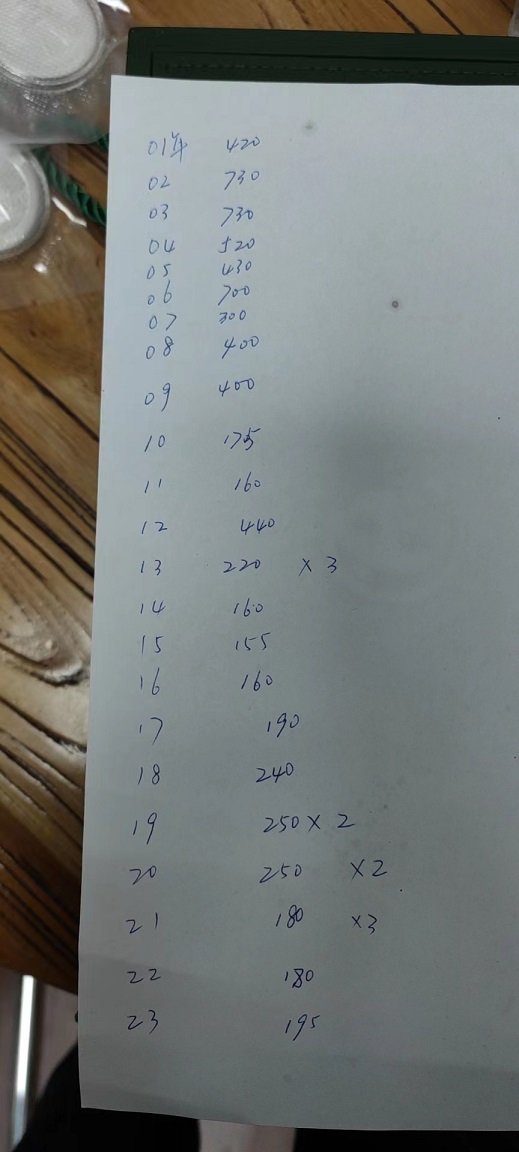 01年 420
02 730
03 730
04 520
05 430
06 700
07 300
08 400
09 400
10 175
11 160
12 440
13 220 × 3
14 160
15 155
16 160
17 190
18 240
19 250 × 2
20 250 ×2
21 180 ×3
22 180
23 195